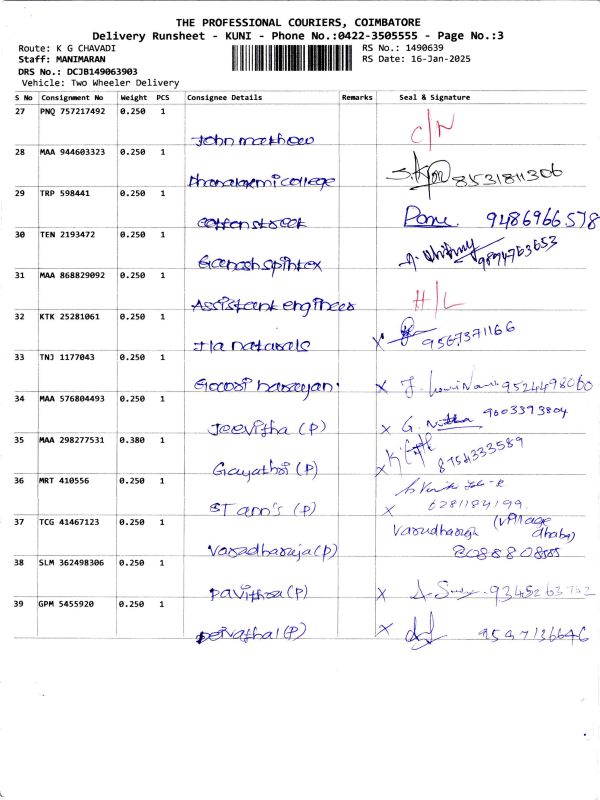 THE PROFESSIONAL COURIERS, COIMBATORE
Delivery Runsheet - KUNI - Phone No.:0422-3505555 - Page No.:3
Route: K G CHAVADI RS No.: 1490639
Staff: MANIMARAN RS Date: 16-Jan-2025
DRS No.: DCJB149063903
Vehicle: Two Wheeler Delivery
S No Consignment No Weight PCS Consignee Details Remarks Seal & Signature
27 PNQ 757217492 0.250 1
John mathew C/N
28 MAA 944603323 0.250 1
Dhanalaxmi college 8531811306
29 TRP 598441 0.250 1
cotton street 9486966578
30 TEN 2193472 0.250 1
Ganesh spintex 9894763653
31 MAA 868829092 0.250 1
Assistant engineer H/L
32 KTK 25281061 0.250 1
Ila naturals X 9567371166
33 TNJ 1177043 0.250 1
Gowri narayan X 9524498060
34 MAA 576804493 0.250 1
Jeevitha (P) X G. 9003393804
35 MAA 298277531 0.380 1
Gayathri (P) X 8754333589
36 MRT 410556 0.250 1
ST ann's (P) X 6281184199
37 TCG 41467123 0.250 1
Varadharaja (P) (village dhaba)
38 SLM 362498306 0.250 1
Pavithra (P) X
39 GPM 5455920 0.250 1
(P) X 9597136646